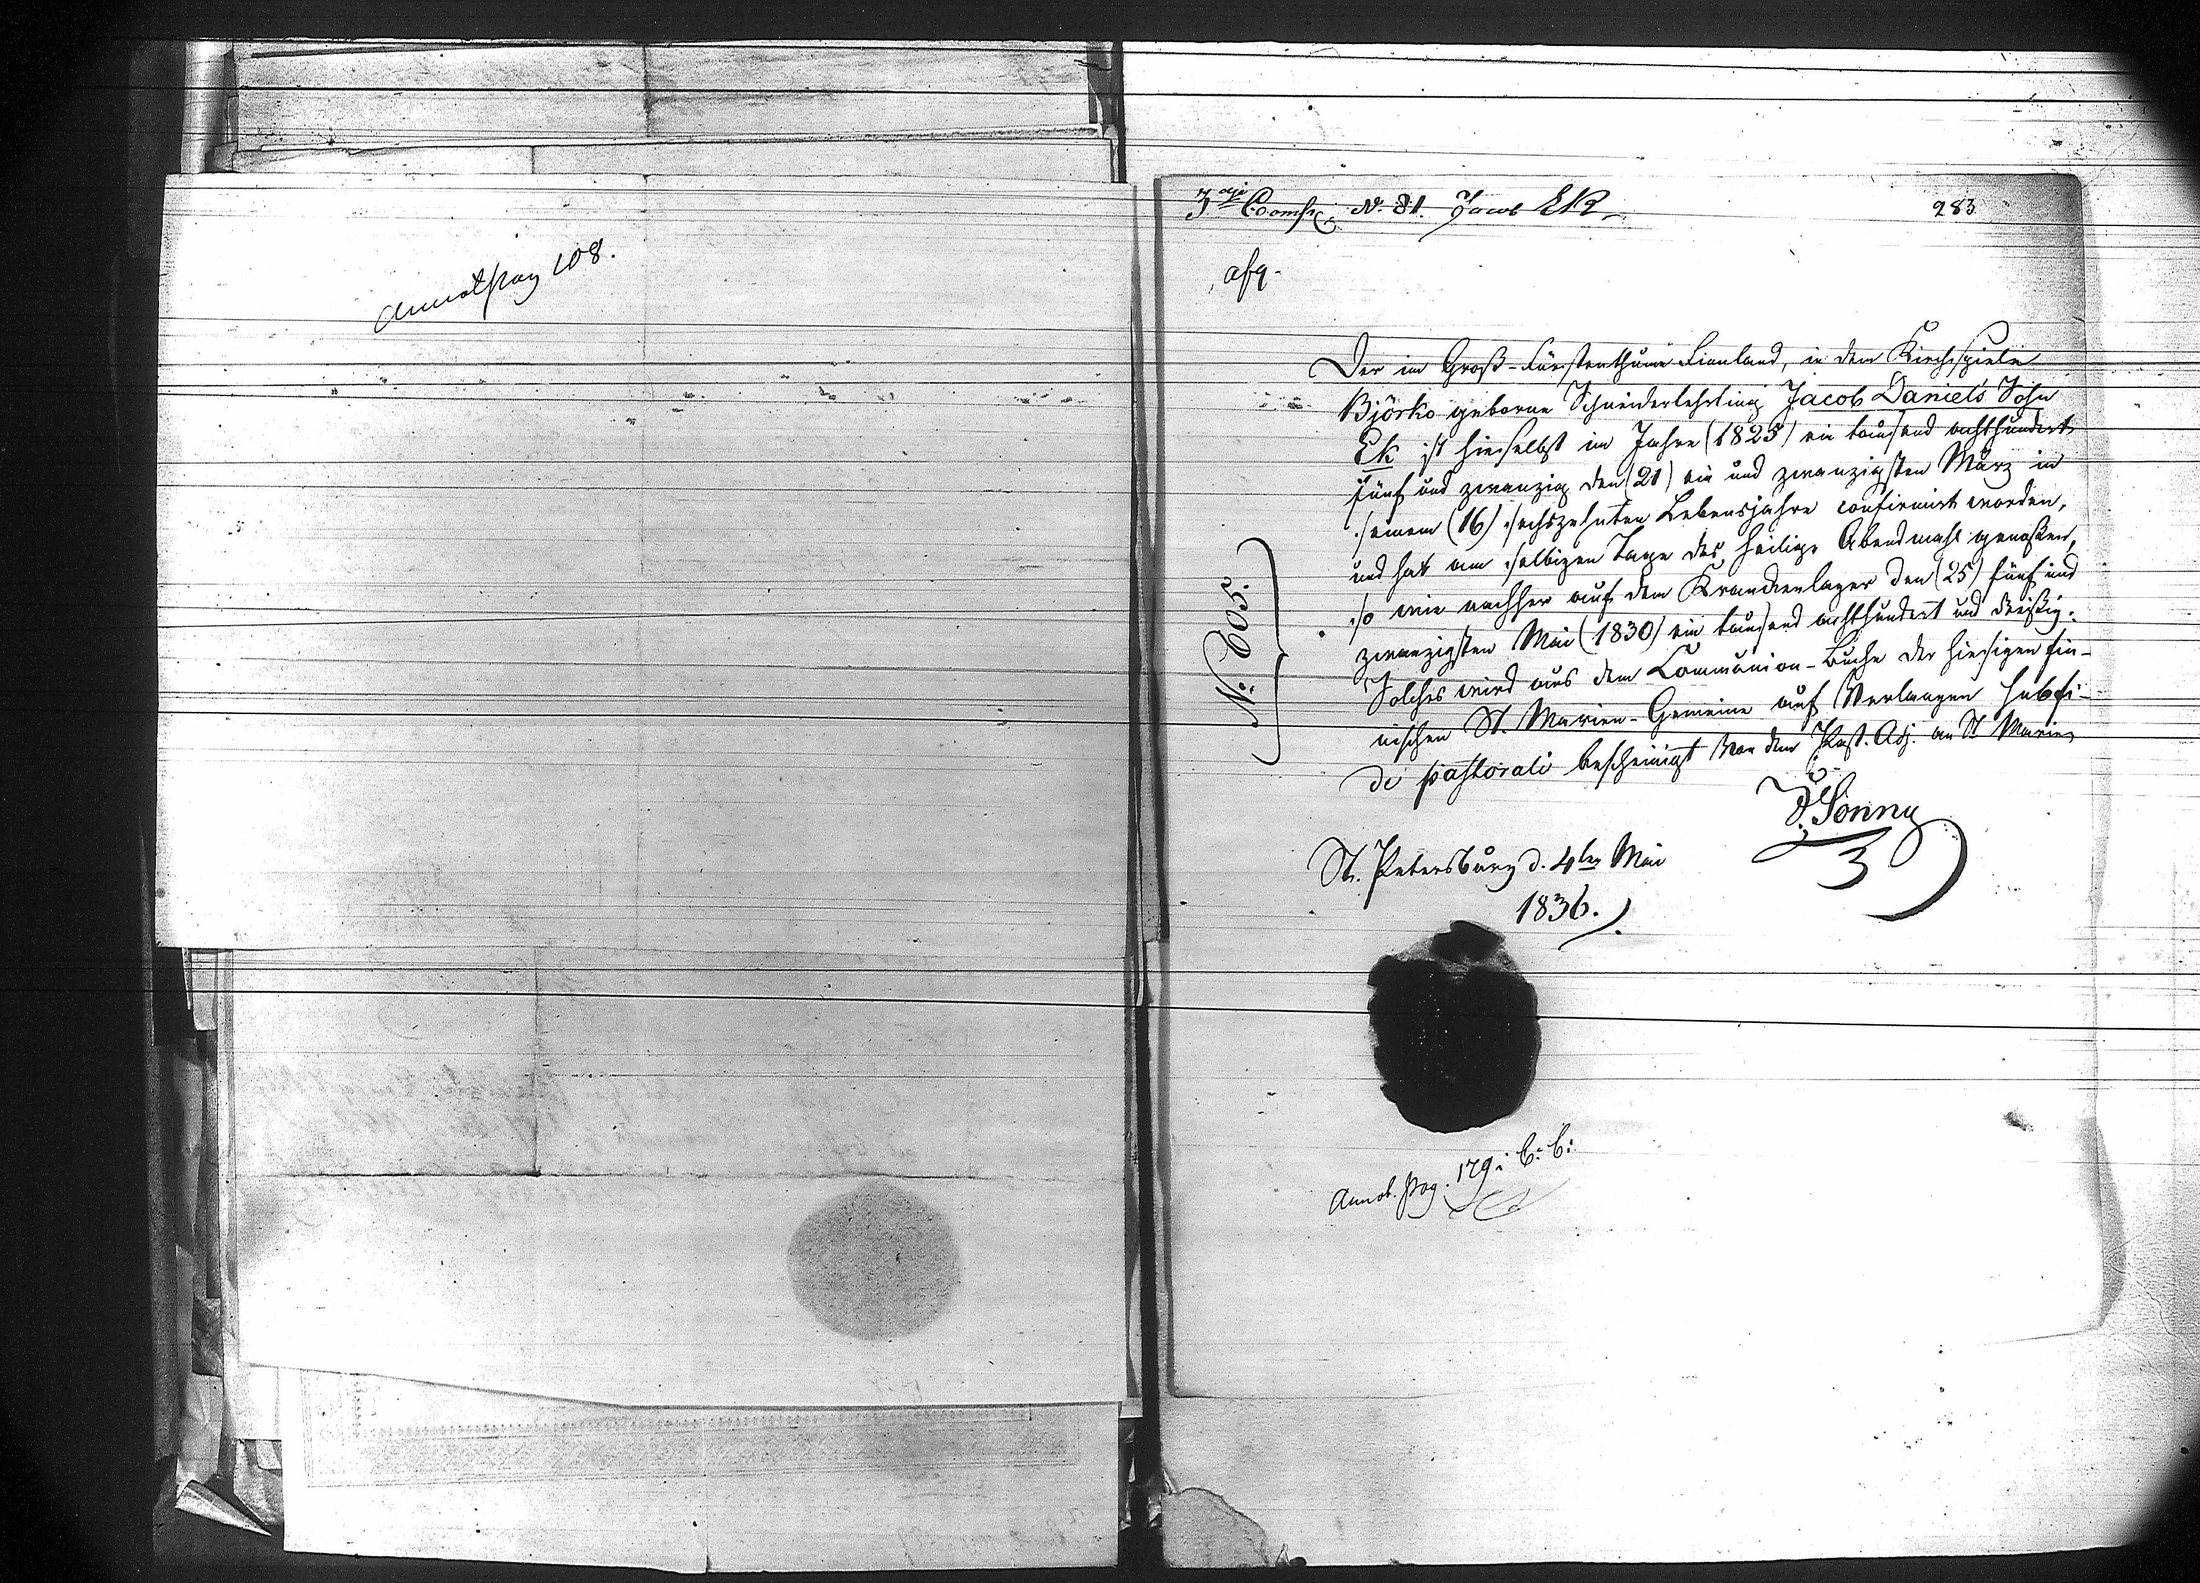 Annot pag 108.
3dje Comp. N. 81. Jacob Ek
283
afg.
Der im Groß-Fürstenthum Finnland, in dem Kirchspiele
Björko geborne Schneiderlehrling Jacob Daniels Sohn
Ek ist hieselbst im Jahre (1825) ein tausend achthundert
fünf und zwanzig den (21) ein und zwanzigsten März in
seinem (16) sechszehnten Lebensjahre confirmirt worden,
und hat am selbigen Tage das heilige Abendmahl genoßen,
so wie nachher auf dem Krankenlager den (25) fünf und
zwanzigsten Mai (1830) ein tausend achthundert und dreißig.
Solches wird aus dem Communion-Buche der hiesigen fin-
nischen St. Marien-Gemeine auf Verlangen sub fi-
de pastorali bescheinigt von dem Past. Adj. an St. Marien
Sonny
No. 605.
St. Petersburg d. 4ten Mai
1836.
Annot. pag. 179 i b: b: